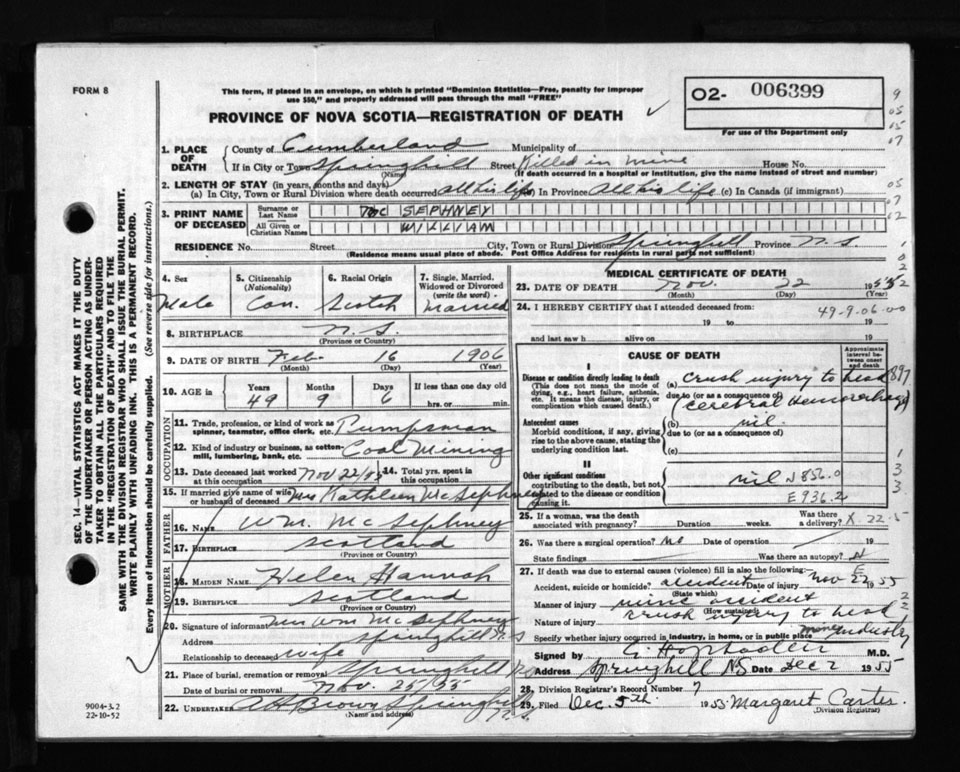 FORM 8
This form, if placed in an envelope, on which is printed "Dominion Statistics—Free, penalty for improper
use $50," and properly addressed will pass through the mail "FREE"
PROVINCE OF NOVA SCOTIA—REGISTRATION OF DEATH
O2- 006399
For use of the Department only
1. PLACE OF DEATH County of Cumberland Municipality of
If in City or Town Springhill Street Killed in mine House No.
(Name) (If death occurred in a hospital or institution, give the name instead of street and number)
2. LENGTH OF STAY (in years, months and days)
(a) In City, Town or Rural Division where death occurred all his life (b) In Province All his life (c) In Canada (if immigrant)
3. PRINT NAME OF DECEASED Surname or Last Name Mc SEPHNEY
All Given or Christian Names WILLIAM
RESIDENCE No. Street City, Town or Rural Division Springhill Province N.S.
(Residence means usual place of abode. Post Office Address for residents in rural parts not sufficient)
4. Sex Male
5. Citizenship (Nationality) Can.
6. Racial Origin Scotch
7. Single, Married, Widowed or Divorced (write the word) Married
8. BIRTHPLACE N.S.
(Province or Country)
9. DATE OF BIRTH Feb 16 1906
(Month) (Day) (Year)
10. AGE in Years Months Days If less than one day old
49 9 6 hrs. or min.
OCCUPATION
11. Trade, profession, or kind of work as spinner, teamster, office clerk, etc. Pumpsman
12. Kind of industry or business, as cotton-mill, lumbering, bank, etc. Coal Mining
13. Date deceased last worked at this occupation Nov 22/55 14. Total yrs. spent in this occupation
15. If married give name of wife or husband of deceased Mrs Kathleen McSephney
FATHER
16. NAME Wm. McSephney
17. BIRTHPLACE Scotland
(Province or Country)
MOTHER
18. MAIDEN NAME Helen Hannah
19. BIRTHPLACE Scotland
(Province or Country)
20. Signature of informant Mrs Wm McSephney
Address Springhill N.S
Relationship to deceased wife
21. Place of burial, cremation or removal Springhill N.S
Date of burial or removal Nov. 25/55
22. UNDERTAKER A H Brown Springhill N.S.
(Name and address)
MEDICAL CERTIFICATE OF DEATH
23. DATE OF DEATH Nov. 22 1955
(Month) (Day) (Year)
24. I HEREBY CERTIFY that I attended deceased from:
49-9-06-00
19 to 19
and last saw h alive on 19
CAUSE OF DEATH
Approximate interval between onset and death
I
Disease or condition directly leading to death (a) crush injury to head
(This does not mean the mode of dying, e.g., heart failure, asthenia, etc. It means the disease, injury, or complication which caused death.)
due to (or as a consequence of) (cerebral Hemorrhage)
Antecedent causes (b) nil.
Morbid conditions, if any, giving rise to the above cause, stating the underlying condition last.
due to (or as a consequence of)
(c)
II
Other significant conditions contributing to the death, but not related to the disease or condition causing it. nil N856.0
E936.2
25. If a woman, was the death associated with pregnancy? Duration weeks. Was there a delivery? X 22.5
26. Was there a surgical operation? No Date of operation 19
State findings Was there an autopsy? N
27. If death was due to external causes (violence) fill in also the following:
Accident, suicide or homicide? accident Date of injury Nov 22 1955
(State which)
Manner of injury mine accident
(How sustained)
Nature of injury crush injury to head
Specify whether injury occurred in industry, in home, or in public place mine industry
Signed by M.D.
Address Springhill NS Date Dec 2 1955
28. Division Registrar's Record Number 7
29. Filed Dec. 5th. 1955 Margaret Carter
(Division Registrar)
SEC. 14—VITAL STATISTICS ACT MAKES IT THE DUTY
OF THE UNDERTAKER OR PERSON ACTING AS UNDER-
TAKER TO OBTAIN ALL THE PARTICULARS REQUIRED
IN THE "REGISTRATION OF DEATH" AND TO FILE THE
SAME WITH THE DIVISION REGISTRAR WHO SHALL ISSUE THE BURIAL PERMIT.
WRITE PLAINLY WITH UNFADING INK. THIS IS A PERMANENT RECORD.
Every item of information should be carefully supplied. (See reverse side for instructions.)
9004-3.2
22-10-52